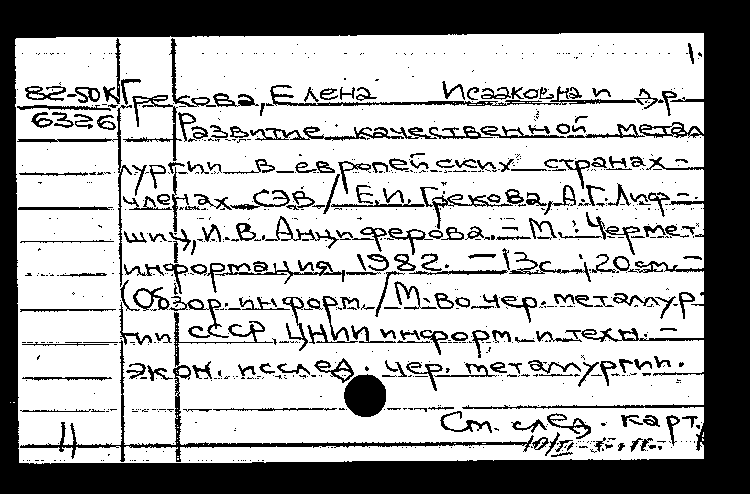 1.
82-50К Грекова, Елена Исааковна и др.
6326 Развитие качественной метал
лургии в европейских странах-
членах СЭВ / Е.И. Грекова, А.Г. Лиф-
шиц, И.В. Анциферова. - М.: Чермет
информация, 1982. - 13с.; 20 см. -
(Обзор. информ. / М-во чер. металлур-
гии СССР, ЦНИИ информ. и техн.-
экон. исслед. чер. металлургии.
См. след. карт.
11